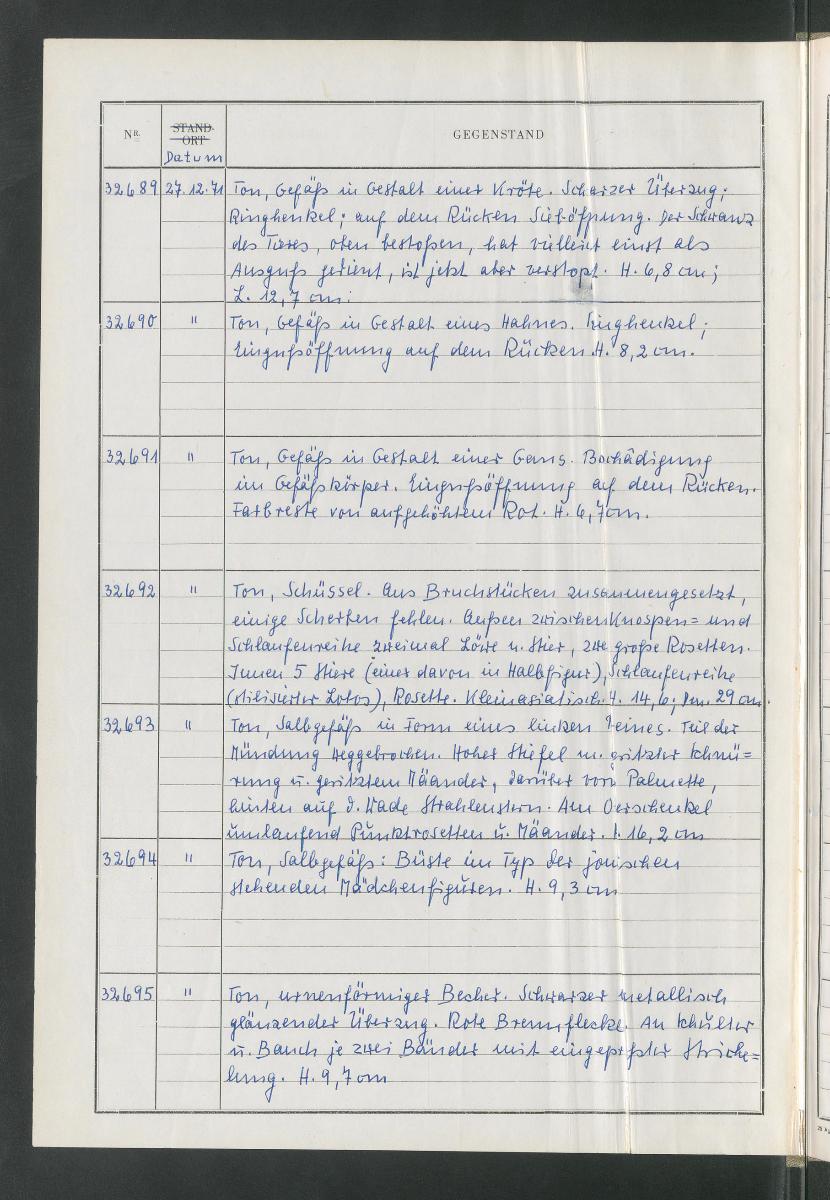 NR. STAND-ORT GEGENSTAND
Datum
32689 27.12.71 Ton, Gefäß in Gestalt einer Kröte. Scharzer Überzug;
Ringhenkel; auf dem Rücken Sieböffnung. Der Schwanz
des Tieres, oben bestoßen, hat vielleicht einst als
Ausguß gedient, ist jetzt aber verstopt. H. 6,8 cm;
L. 12,7 cm.
32690 " Ton, Gefäß in Gestalt eines Hahnes. Ringhenkel;
Eingußöffnung auf dem Rücken. H. 8,2 cm.
32691 " Ton, Gefäß in Gestalt einer Gans. Beschädigung
im Gefäßkörper. Eingußöffnung auf dem Rücken.
Farbreste von aufgehöhtem Rot. H. 6,7 cm.
32692 " Ton, Schüssel. Aus Bruchstücken zusammengesetzt,
einige Scherben fehlen. Außen zwischen Knospen= und
Schlaufenreihe zweimal Löwe u. Stier, zwei große Rosetten.
Innen 5 Stiere (einer davon in Halbfigur), Schlaufenreihe
(stilisierter Lotos), Rosette. Kleinasiatisch. H. 14,6; Dm. 29 cm.
32693 " Ton, Salbgefäß in Form eines linken Beines. Teil der
Mündung weggebrochen. Hoher Stiefel m. gritzter Schnü=
rung u. geritztem Mäander, darüber vorn Palmette,
hinten auf d. Wade Strahlenstern. Am Oerschenkel
umlaufend Punktrosetten u. Mäander. 16,2 cm
32694 " Ton, Salbgefäß: Büste im Typ der jonischen
stehenden Mädchenfiguren. H. 9,3 cm
32695 " Ton, urnenförmiger Becher. Schwarzer metallisch
glänzender Überzug. Rote Brennflecke. An Schulter
u. Bauch je zwei Bänder mit eingepreßter Striche=
lung. H. 9,7 cm